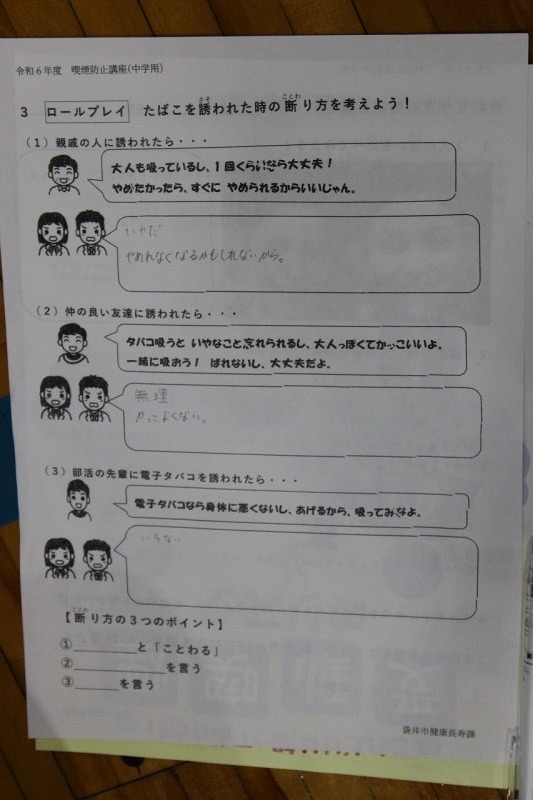 令和6年度 喫煙防止講座(中学用)
3 ロールプレイ たばこを誘われた時の断り方を考えよう!
(1)親戚の人に誘われたら・・・
大人も吸っているし、1回くらいなら大丈夫!
やめたかったら、すぐに やめられるからいいじゃん。
いやだ
やめれなくなるかもしれないから。
(2)仲の良い友達に誘われたら・・・
タバコ吸うと いやなこと忘れられるし、大人っぽくてかっこいいよ。
一緒に吸おう! ばれないし、大丈夫だよ。
無理
かっこよくない。
(3)部活の先輩に電子タバコを誘われたら・・・
電子タバコなら身体に悪くないし、あげるから、吸ってみなよ。
いらない
【断り方の3つのポイント】
①________と「ことわる」
②____________を言う
③______を言う
袋井市健康長寿課